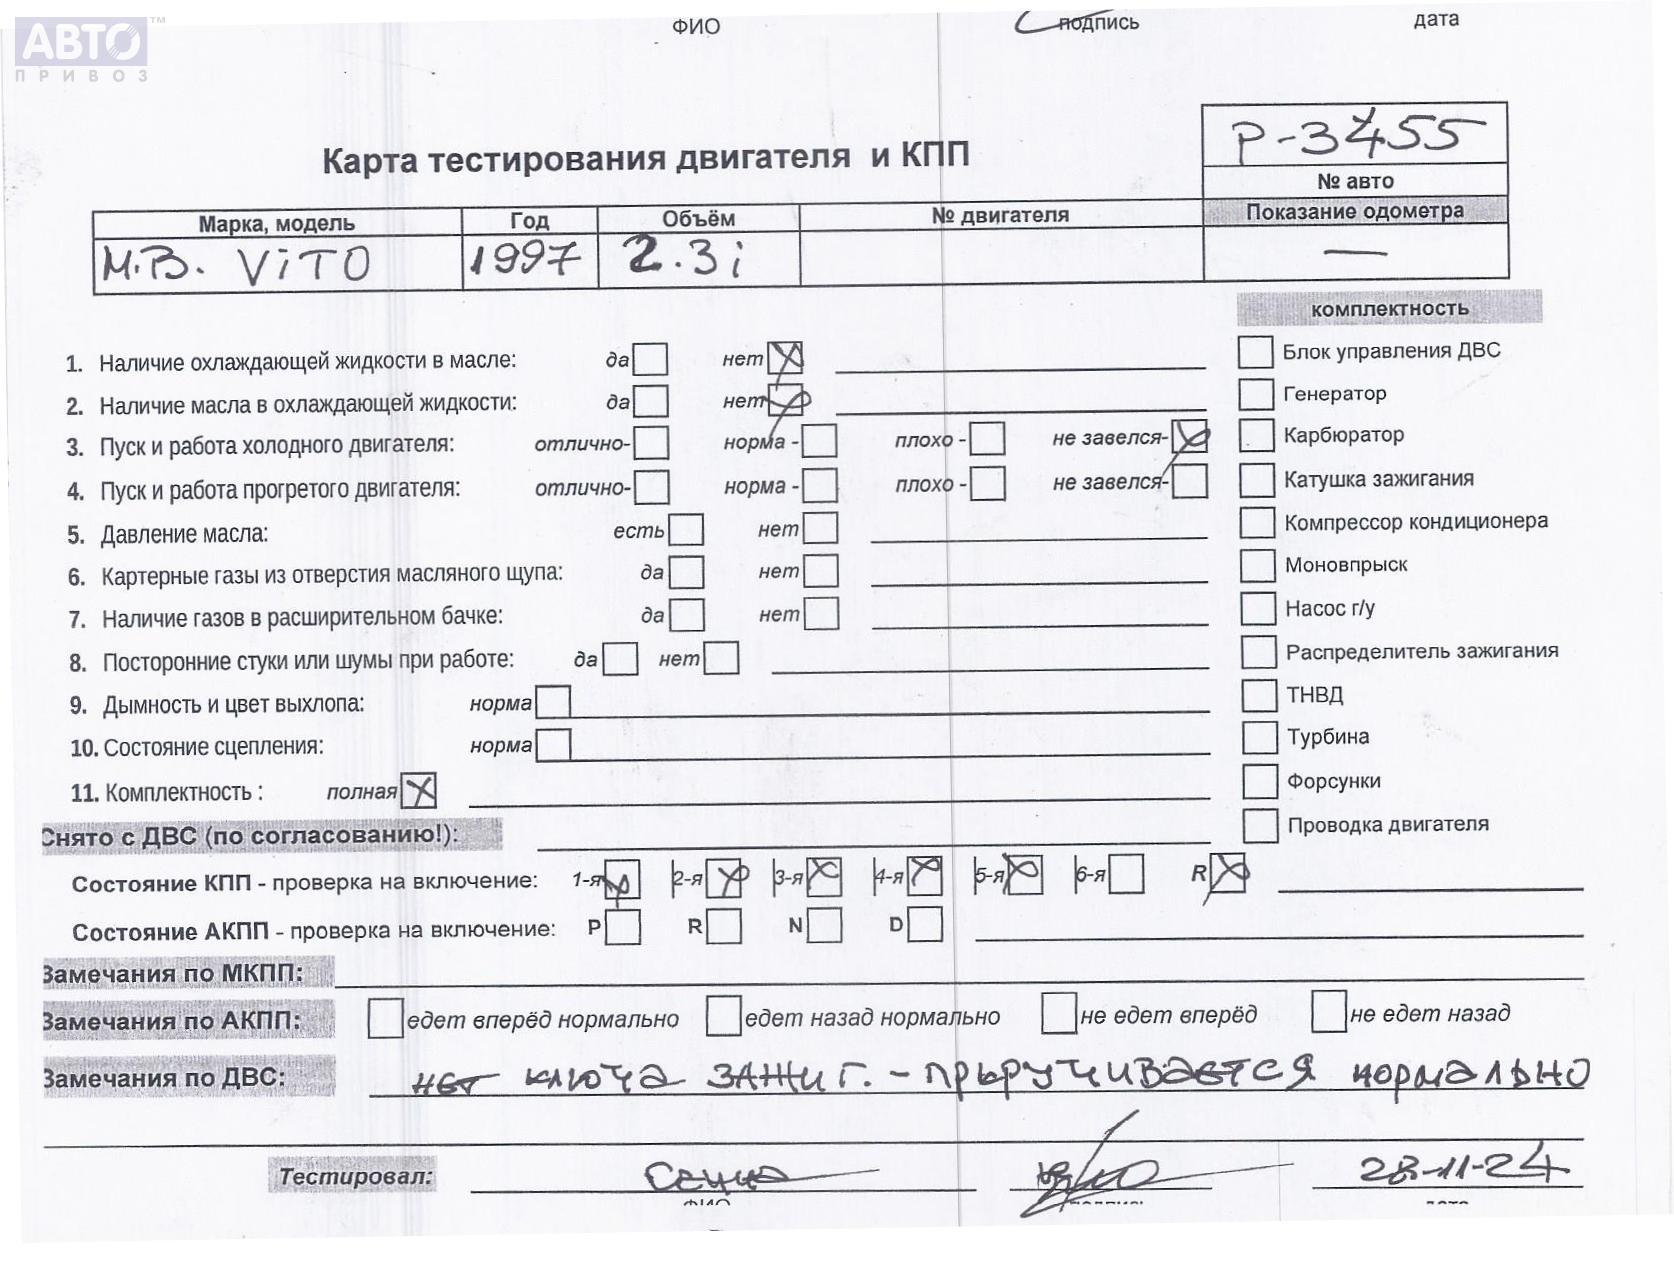 АВТО ™
ПРИВОЗ
ФИО подпись дата
Р-3455
Карта тестирования двигателя и КПП
№ авто
Марка, модель Год Объём № двигателя Показание одометра
М.В. ViTO 1997 2.3i —
комплектность
1. Наличие охлаждающей жидкости в масле: да нет
Блок управления ДВС
2. Наличие масла в охлаждающей жидкости: да нет
Генератор
3. Пуск и работа холодного двигателя: отлично- норма - плохо - не завелся-
Карбюратор
4. Пуск и работа прогретого двигателя: отлично- норма - плохо - не завелся-
Катушка зажигания
5. Давление масла: есть нет
Компрессор кондиционера
6. Картерные газы из отверстия масляного щупа: да нет
Моновпрыск
7. Наличие газов в расширительном бачке: да нет
Насос г/у
8. Посторонние стуки или шумы при работе: да нет
Распределитель зажигания
9. Дымность и цвет выхлопа: норма
ТНВД
10. Состояние сцепления: норма
Турбина
11. Комплектность : полная
Форсунки
Снято с ДВС (по согласованию!):
Проводка двигателя
Состояние КПП - проверка на включение: 1-я 2-я 3-я 4-я 5-я 6-я R
Состояние АКПП - проверка на включение: P R N D
Замечания по МКПП:
Замечания по АКПП: едет вперёд нормально едет назад нормально не едет вперёд не едет назад
Замечания по ДВС: нет ключа зажиг. - прыручивается нормально
Тестировал: 28-11-24
ФИО подпись дата